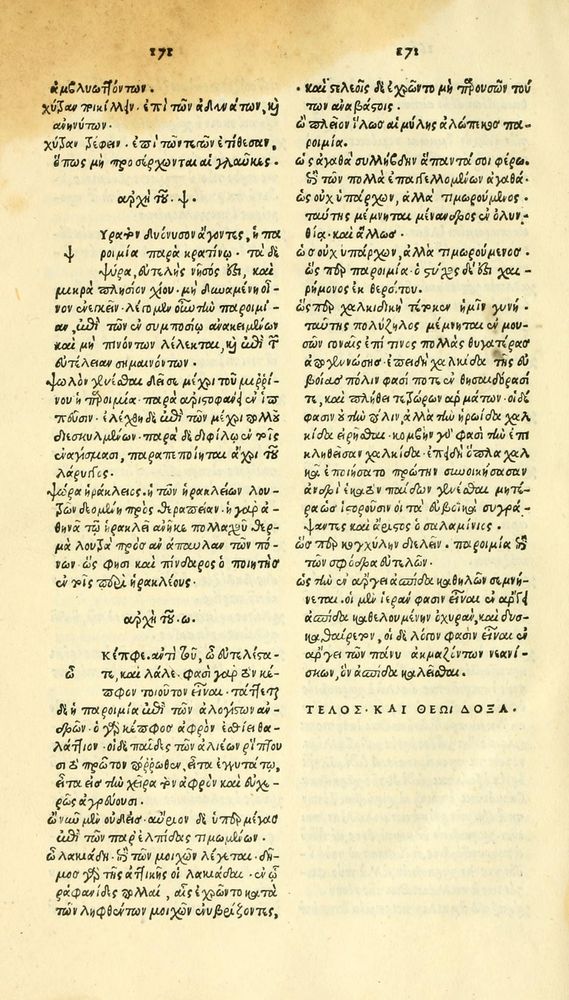 171
ἀμβλυωττόντων.
χύτραν ποικίλλειν· ἐπὶ τῶν ἀδυνάτων, καὶ
ἀνηνύτων.
χύτραν τρέφειν. ἐπὶ τούτων ἐτίθεσαν,
ὅπως μὴ προσέρχονται αἱ γλαῦκες.
ἀρχὴ τοῦ. ψ.
ψ
ύρα τὸν διόνυσον ἄγοντες, ἡ πα
ροιμία παρὰ κρατίνῳ· τὰ δὲ
ψύρα, εὐτελὴς νῆσός ἐστι, καὶ
μικρὰ πλησίον χίου· μὴ δυναμένη οἶ-
νον ἐνεγκεῖν. λέγομεν οὖν τὴν παροιμί-
αν, ἐπὶ τῶν ἐν συμποσίῳ ἀνακειμένων
καὶ μὴ πινόντων λέλεκται, καὶ ἐπὶ τὴν
εὐτέλειαν σημαινόντων.
ψωλὸν γενέσθαι δεῖ σε μέχρι τοῦ μυρρί-
νου ἡ παροιμία· παρὰ ἀριστοφάνῃ ἐν ἱπ
πεῦσιν· ἐλέχθη δὲ ἐπὶ τῶν μέχρι πολλοῦ
διεσκυλμένων· παρὰ δὲ διφίλῳ ἐν τοῖς
ἐναγίσμασι, παραπεποίηται ἄχρι τοῦ
λάρυγγος.
ψώρα ἡράκλειος. ἡ τῶν ἡρακλείων λου-
τρῶν δεομένη πρὸς θεραπείαν· ἡ γὰρ ἀ-
θηνᾶ τῷ ἡρακλεῖ ἀνῆκε πολλαχοῦ θερ-
μὰ λουτρὰ πρὸς ἀνάπαυλαν τῶν πό-
νων ὥς φησι καὶ πίνδαρος ὁ ποιητὴς
ἐν τοῖς περὶ ἡρακλέους.
ἀρχὴ τοῦ. ω.
ὦ
κέπφε. ἀντὶ τοῦ, ὦ εὐτελέστα-
τε, καὶ λάλε. φασὶ γὰρ τὸν κέ-
πφον τοιοῦτον εἶναι. τάττεται
δὲ ἡ παροιμία ἐπὶ τῶν ἀλογίστων ἀν-
δρῶν· ὁ γὰρ κέπφος ἀφρὸν ἐσθίει θα-
λάττιον· οἱ δὲ παῖδες τῶν ἁλιέων ῥίπτου
σι τὸ πρῶτον πόρρωθεν, εἶτα ἐγγυτάτω,
εἶτα εἰς τὴν χεῖρα τὸν ἀφρὸν καὶ εὐχε-
ρῶς ἀγρεύουσι.
ὦ νῦν μὲν οὐδεὶς αὔριον δὲ ὑπέρμεγας
ἐπὶ τῶν παρ' ἐλπίδας τιμωμένων.
ὦ λακιάδη· ἐπὶ τῶν μοιχῶν λέγεται· δῆ-
μος γὰρ τῆς ἀττικῆς οἱ λακιάδαι· ἐν ᾧ
ῥαφανίδες πολλαί, αἷς ἐχρῶντο κατὰ
τῶν ληφθέντων μοιχῶν ἐνυβρίζοντες,
171
καὶ στελεοῖς δὲ ἐχρῶντο μὴ παρουσῶν τού
των
ὁ πλεῖον ἵλεως αἱμύλης ἀλώπεκος πα-
ροιμία.
ὡς ἀγαθὰ συλλήβδην ἅπαντά σοι φέρω.
ἐπὶ τῶν πολλὰ ἐπαγγελλομένων ἀγαθά.
ὡς οὐχ ὑπάρχων, ἀλλὰ τιμωρούμενος.
ταύτης μέμνηται μένανδρος ἐν ὀλυν-
θίᾳ καὶ ἄλλως.
ὡς οὐχ ὑπάρχων, ἀλλὰ τιμωρούμενος.
ὥσπερ παροιμία· ὁ στίχος δέ ἐστι χαι-
ρήμονος ἐκ θερσίτου.
ὥσπερ χαλκιδικὴ τέτοκεν ἡμῖν γυνή.
ταύτης πολύζηλος μέμνηται ἐν μου-
σῶν γοναῖς ἐπί τινος πολλὰς θυγατέρας
ἀπογεννώσης· ἐπειδὴ χαλκίδα τῆς εὐ
βοίας πόλιν φασί ποτε ἐνθησαυρᾶσί
τε, καὶ πλήθει τεθρίππων ἁρμάτων· οἱ δέ
φασιν οὐ τὴν πόλιν, ἀλλὰ τὴν ἡρωΐδα χαλ
κίδα εἰρῆσθαι· κόμβην γάρ φασι τὴν ἐπι
κληθεῖσαν χαλκίδα· ἐπειδὴ ὅπλα χαλ
κᾶ ἐποιήσατο πρώτην συνοικήσασαν
ἀνδρὶ ἑκατὸν παίδων γενέσθαι μητέ-
ρα ὡς ἱστοροῦσιν οἱ τὰ εὐβοϊκὰ συγρά-
ψαντες καὶ ἄριστος ὁ σαλαμίνιος.
ὥσπερ κογχύλην διελεῖν. παροιμία ἐπὶ
τῶν σφόδρα εὐτελῶν.
ὡς τὴν ἐν ἄργει ἀσπίδα καθελῶν σεμνή-
νεται. οἱ μὲν ἱεράν φασιν εἶναι ἐν ἄργει
ἀσπίδα καθελουμένην ὀχυράν, καὶ δυσ-
καθαίρετον, οἱ δὲ λόγον φασὶν εἶναι ἐν
ἄργει τῶν πάνυ ἀκμαζόντων νεανί-
σκων, ὃν ἀσπίδα καλεῖσθαι.
ΤΕΛΟΣ· ΚΑΙ ΘΕΩΙ ΔΟΞΑ.